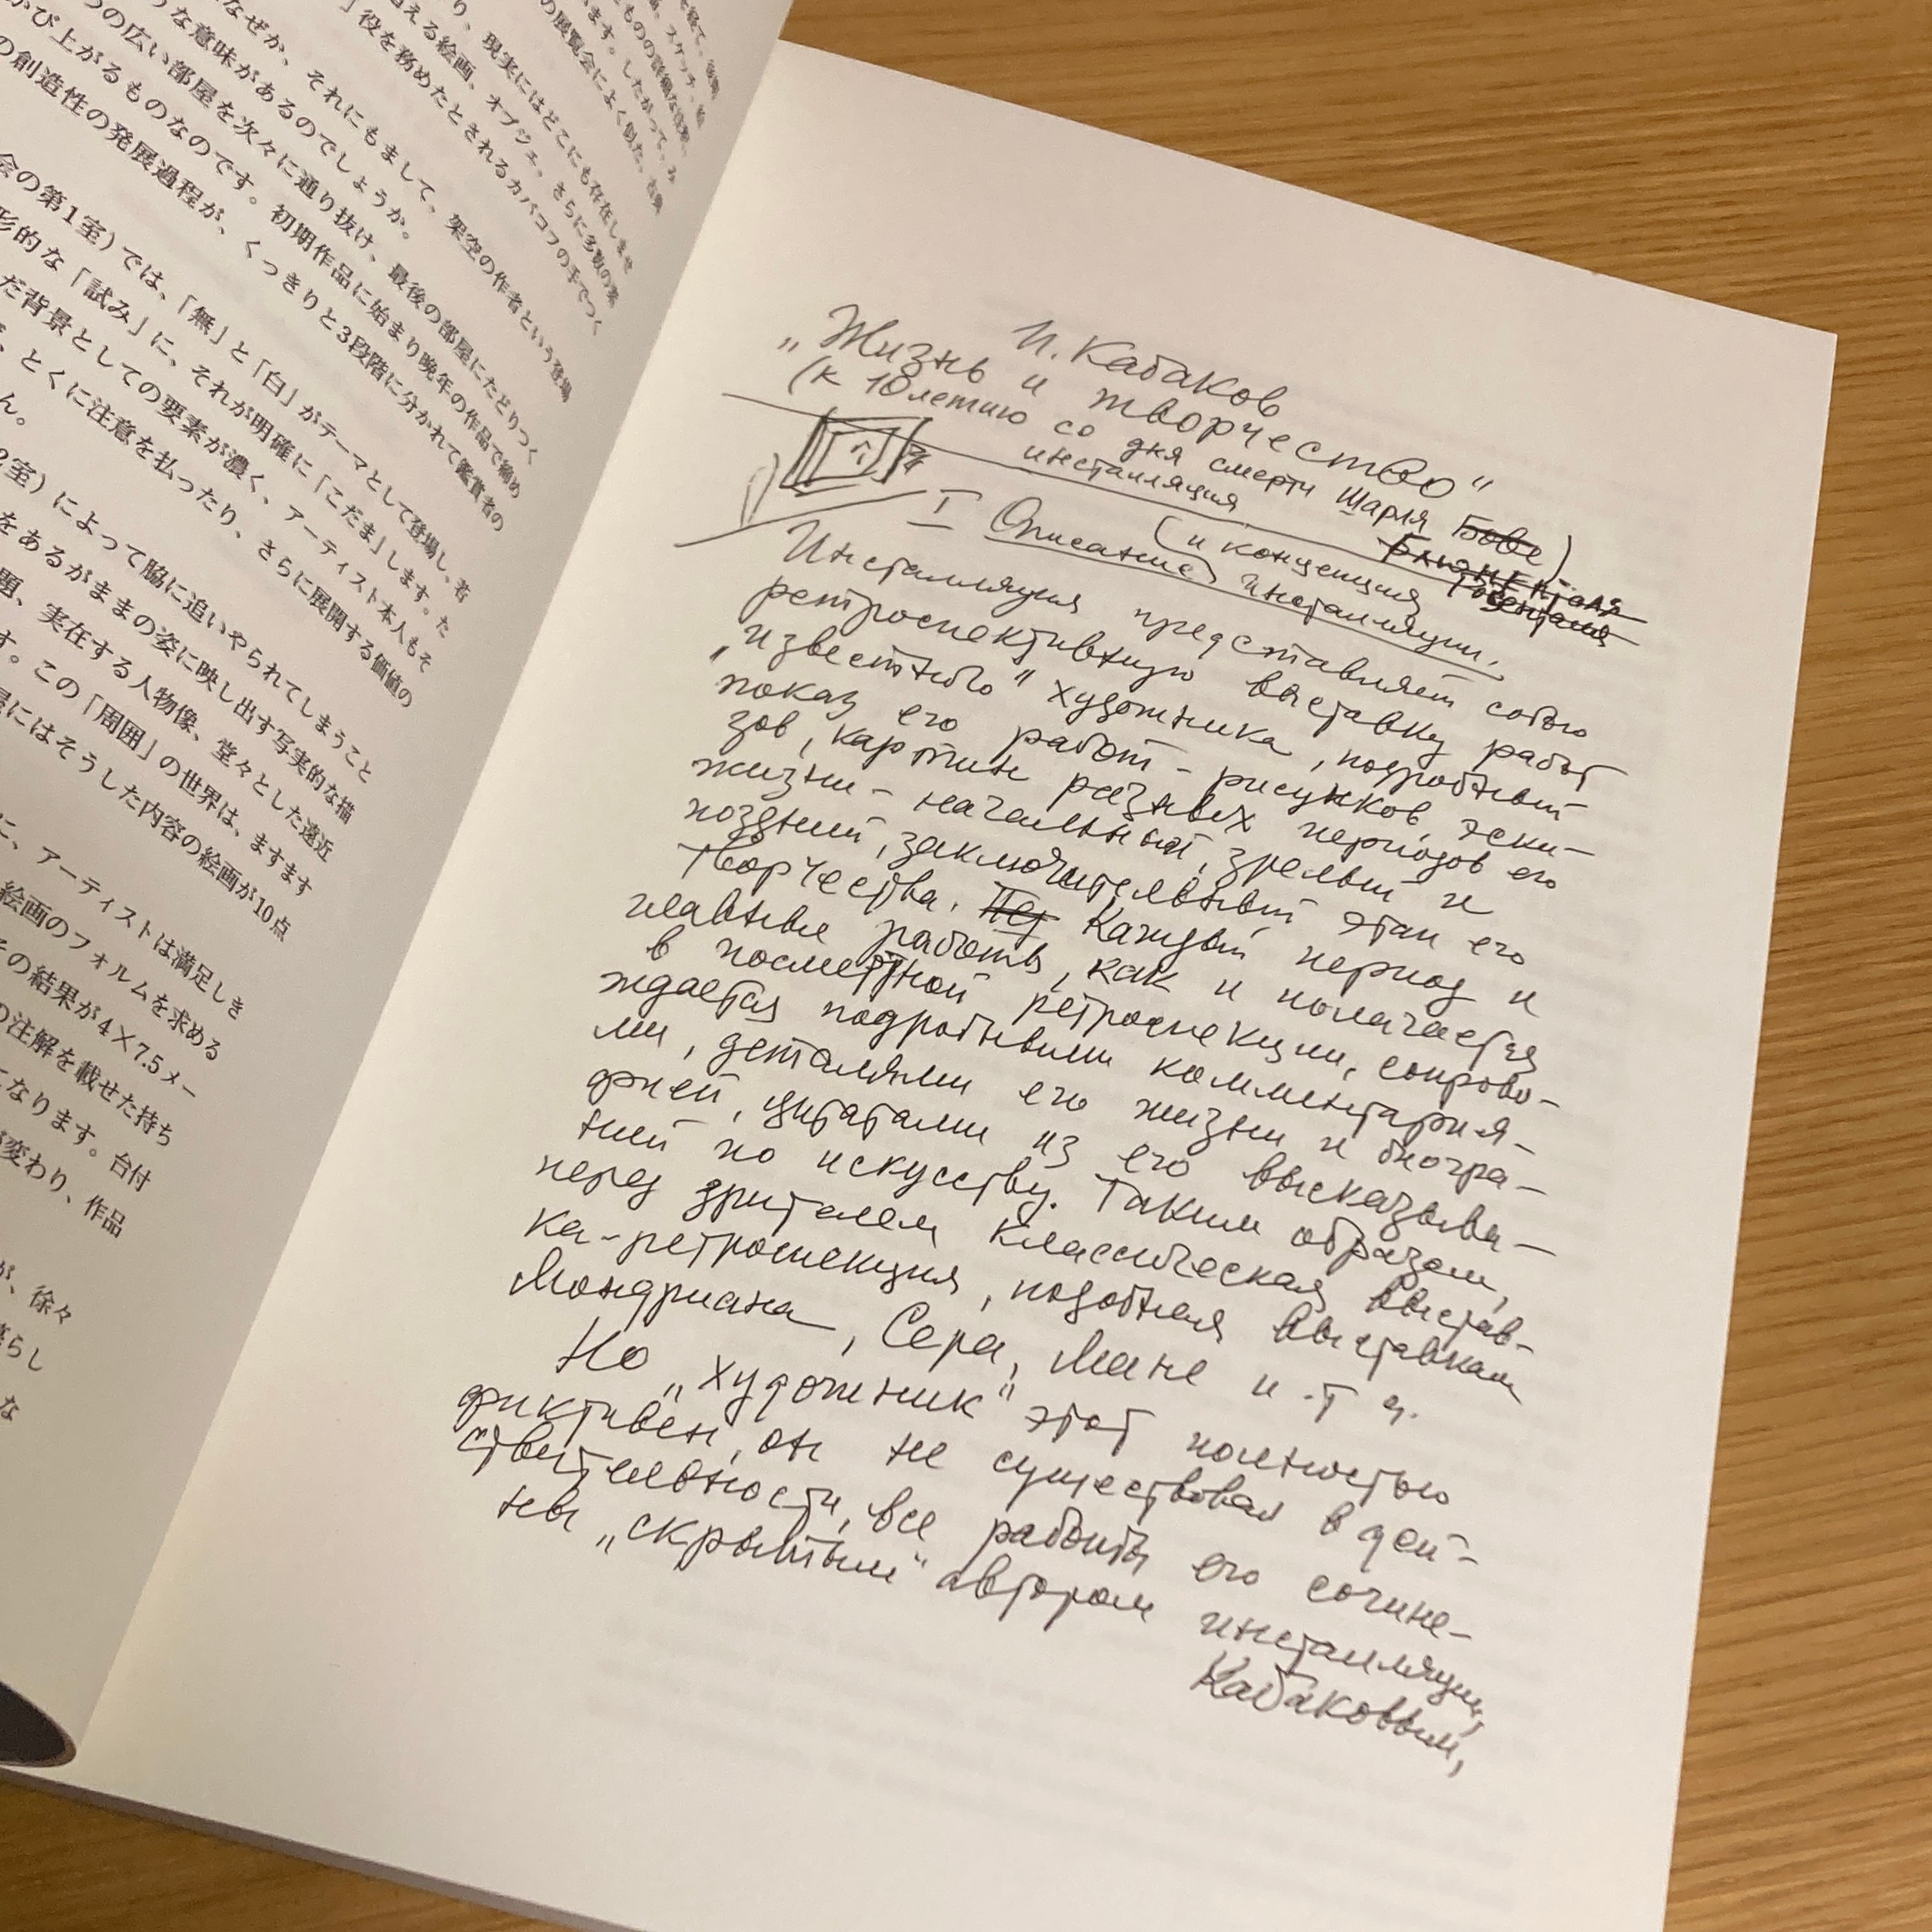 、スケッチ、絵
ものの詳細な注釈、
ます。したがって、み
の展覧会によく似た、古典
り、現実にはどこにも存在しませ
える絵画、オブジェ、さらに多数の素
」役を務めたとされるカバコフの手でつく
なぜか、それにもまして、架空の作者という登場
うな意味があるのでしょうか。
つの広い部屋を次々に通り抜け、最後の部屋にたどりつく
かび上がるものなのです。初期作品に始まり晩年の作品で締め
の創造性の発展過程が、くっきりと3段階に分かれて鑑賞者の
会の第1室）では、「無」と「白」がテーマとして登場し、若
形的な「試み」に、それが明確に「こだま」します。た
だ背景としての要素が濃く、アーティスト本人もそ
、とくに注意を払ったり、さらに展開する価値の
ん。
2室）によって脇に追いやられてしまうこと
をあるがままの姿に映し出す写実的な描
題、実在する人物像、堂々とした遠近
す。この「周囲」の世界は、ますます
屋にはそうした内容の絵画が10点
に、アーティストは満足しき
絵画のフォルムを求める
その結果が4×7.5メー
の注解を載せた持ち
になります。台付
が変わり、作品
が、徐々
暮らし
な
И. Кабаков
„Жизнь и творчество"
(к 10летию со дня смерти Шарля Бове)
инсталляция
I Описание (и концепция)
инсталляции.
Инсталляция представляет собою
ретроспективную выставку работ
„известного" художника, подробный
показ его работ - рисунков, эски-
зов, картин разных периодов его
жизни - начальный, зрелый и
поздний, заключительный этап его
творчества. Каждый период и
главные работы, как и полагается
в посмертной ретроспекции, сопрово-
ждается подробными комментария-
ми, деталями его жизни и биогра-
фией, цитатами из его высказыва-
ний по искусству. Таким образом,
перед зрителем классическая выстав-
ка-ретроспекция, подобная выставкам
Мондриана, Сера, Мане и.т д.
Но „художник" этот полностью
фиктивен, он не существовал в дей-
ствительности, все работы его сочине-
ны „скрытым" автором инсталляции,
Кабаковым,